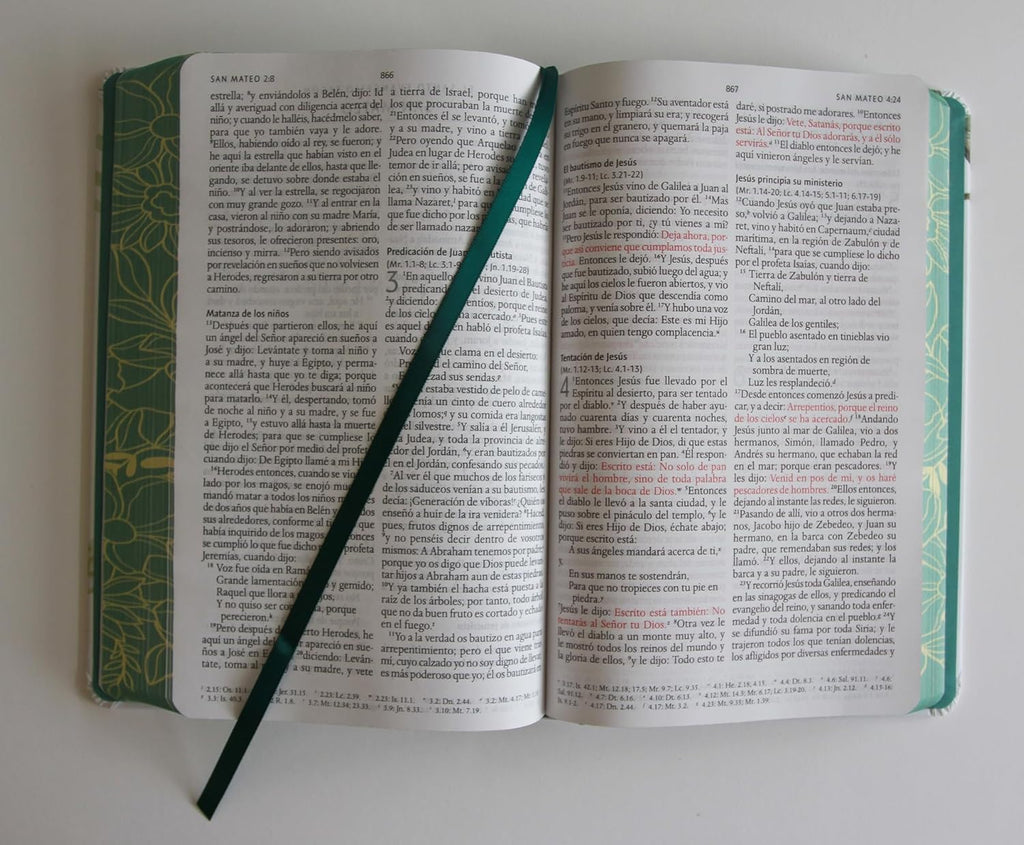 SAN MATEO 2:8
866
estrella; ⁸y enviándolos a Belén, dijo: Id
allá y averiguad con diligencia acerca del
niño; y cuando le halléis, hacédmelo saber,
para que yo también vaya y le adore.
⁹Ellos, habiendo oído al rey, se fueron; y
he aquí la estrella que habían visto en el
oriente iba delante de ellos, hasta que lle-
gando, se detuvo sobre donde estaba el
niño. ¹⁰Y al ver la estrella, se regocijaron
con muy grande gozo. ¹¹Y al entrar en la
casa, vieron al niño con su madre María,
y postrándose, lo adoraron; y abriendo
sus tesoros, le ofrecieron presentes: oro,
incienso y mirra. ¹²Pero siendo avisados
por revelación en sueños que no volviesen
a Herodes, regresaron a su tierra por otro
camino.
Matanza de los niños
¹³Después que partieron ellos, he aquí
un ángel del Señor apareció en sueños a
José y dijo: Levántate y toma al niño y
a su madre, y huye a Egipto, y perma-
nece allá hasta que yo te diga; porque
acontecerá que Herodes buscará al niño
para matarlo. ¹⁴Y él, despertando, tomó
de noche al niño y a su madre, y se fue
a Egipto, ¹⁵y estuvo allá hasta la muerte
de Herodes; para que se cumpliese lo
que dijo el Señor por medio del profeta,
cuando dijo: De Egipto llamé a mi
¹⁶Herodes entonces, cuando se vio
lado por los magos, se enojó
mandó matar a todos los niños
de dos años que había en Belén y
sus alrededores, conforme al
había inquirido de los magos.
se cumplió lo que fue dicho por el profeta
Jeremías, cuando dijo:
¹⁸ Voz fue oída en
Grande lamentación, y gemido;
Raquel que llora a
Y no quiso ser porque
perecieron.
¹⁹Pero después de muerto Herodes, he
aquí un ángel del apareció en sue-
ños a José en ²⁰diciendo: Leván-
tate, toma al y a su madre, y vete
a tierra de Israel, porque han
los que procuraban la muerte
²¹Entonces él se levantó, y
y a su madre, y vino a tierra
²²Pero oyendo que Arquelao
Judea en lugar de Herodes su
temor de ir allá; pero
en sueños, se fue a la de Ga-
lea, ²³y vino y habitó en
llama Nazaret, para que cumpliese lo
que fue dicho por los que habría
de ser llamado
Predicación de Juan Bautista
(Mr. 1.1-8; Lc. Jn. 1.19-28)
3 ¹En aquellos vino Juan el Bautista
predicando el desierto de Judea,
²y diciendo: porque el reino
de los cielos ha acercado. ³Pues este
es aquel de en habló el profeta Isaías,
cuando
Voz que clama en el desierto:
el camino del Señor,
sus sendas.
estaba vestido de pelo de
un cinto de cuero alrededor
lomos; y su comida era langostas
silvestre. ⁵Y salía a él Jerusalén,
Judea, y toda la provincia de
el Jordán, ⁶y eran bautizados por
en el Jordán, confesando sus pecados.
⁷Al ver él que muchos de los fariseos
de los saduceos venían a su bautismo, les
decía: ¡Generación de víboras! ¿Quién os
enseñó a huir de la ira venidera? ⁸Haced,
pues, frutos dignos de arrepentimiento,
⁹y no penséis decir dentro de vosotros
mismos: A Abraham tenemos por padre;
porque yo os digo que Dios puede levan-
tar hijos a Abraham aun de estas piedras.
¹⁰Y ya también el hacha está puesta a la
raíz de los árboles; por tanto, todo árbol
que no da buen fruto es cortado y echado
en el fuego.
¹¹Yo a la verdad os bautizo en agua para
arrepentimiento; pero el que viene tras
mí, cuyo calzado yo no soy digno de llevar,
es más poderoso que yo; él os bautizará en
2:15: Os. 11.1. Jer. 31.15. 2:23: Lc. 2.39. 2:23: Is. 11.1. 3:2: Dn. 2.44. 3:2: Mt. 4.17;
3:3: Is. 40.3. R. 1.8. 3:7: Mt. 12.34; 23.33. 3:9: Jn. 8.33. 3:10: Mt. 7.19.
867
SAN MATEO 4:24
Espíritu Santo y fuego. ¹²Su aventador está
en su mano, y limpiará su era; y recogerá
su trigo en el granero, y quemará la paja
en fuego que nunca se apagará.
El bautismo de Jesús
(Mr. 1.9-11; Lc. 3.21-22)
¹³Entonces Jesús vino de Galilea a Juan al
Jordán, para ser bautizado por él. ¹⁴Mas
Juan se le oponía, diciendo: Yo necesito
ser bautizado por ti, ¿y tú vienes a mí?
¹⁵Pero Jesús le respondió: Deja ahora, por-
que así conviene que cumplamos toda jus-
ticia. Entonces le dejó. ¹⁶Y Jesús, después
que fue bautizado, subió luego del agua; y
he aquí los cielos le fueron abiertos, y vio
al Espíritu de Dios que descendía como
paloma, y venía sobre él. ¹⁷Y hubo una voz
de los cielos, que decía: Este es mi Hijo
amado, en quien tengo complacencia.
Tentación de Jesús
(Mr. 1.12-13; Lc. 4.1-13)
4 ¹Entonces Jesús fue llevado por el
Espíritu al desierto, para ser tentado
por el diablo. ²Y después de haber ayu-
nado cuarenta días y cuarenta noches,
tuvo hambre. ³Y vino a él el tentador, y
le dijo: Si eres Hijo de Dios, di que estas
piedras se conviertan en pan. ⁴Él respon-
dió y dijo: Escrito está: No solo de pan
vivirá el hombre, sino de toda palabra
que sale de la boca de Dios. ⁵Entonces
el diablo le llevó a la santa ciudad, y le
puso sobre el pináculo del templo, ⁶y le
dijo: Si eres Hijo de Dios, échate abajo;
porque escrito está:
A sus ángeles mandará acerca de ti,
y,
En sus manos te sostendrán,
Para que no tropieces con tu pie en
piedra.
⁷Jesús le dijo: Escrito está también: No
tentarás al Señor tu Dios. ⁸Otra vez le
llevó el diablo a un monte muy alto, y
le mostró todos los reinos del mundo y
la gloria de ellos, ⁹y le dijo: Todo esto te
daré, si postrado me adorares. ¹⁰Entonces
Jesús le dijo: Vete, Satanás, porque escrito
está: Al Señor tu Dios adorarás, y a él sólo
servirás. ¹¹El diablo entonces le dejó; y he
aquí vinieron ángeles y le servían.
Jesús principia su ministerio
(Mr. 1.14-20; Lc. 4.14-15; 5.1-11; 6.17-19)
¹²Cuando Jesús oyó que Juan estaba pre-
so, volvió a Galilea; ¹³y dejando a Naza-
ret, vino y habitó en Capernaum, ciudad
marítima, en la región de Zabulón y de
Neftalí, ¹⁴para que se cumpliese lo dicho
por el profeta Isaías, cuando dijo:
¹⁵ Tierra de Zabulón y tierra de
Neftalí,
Camino del mar, al otro lado del
Jordán,
Galilea de los gentiles;
¹⁶ El pueblo asentado en tinieblas vio
gran luz;
Y a los asentados en región de
sombra de muerte,
Luz les resplandeció.
¹⁷Desde entonces comenzó Jesús a predi-
car, y a decir: Arrepentíos, porque el reino
de los cielos se ha acercado. ¹⁸Andando
Jesús junto al mar de Galilea, vio a dos
hermanos, Simón, llamado Pedro, y
Andrés su hermano, que echaban la red
en el mar; porque eran pescadores. ¹⁹Y
les dijo: Venid en pos de mí, y os haré
pescadores de hombres. ²⁰Ellos entonces,
dejando al instante las redes, le siguieron.
²¹Pasando de allí, vio a otros dos herma-
nos, Jacobo hijo de Zebedeo, y Juan su
hermano, en la barca con Zebedeo su
padre, que remendaban sus redes; y los
llamó. ²²Y ellos, dejando al instante la
barca y a su padre, le siguieron.
²³Y recorrió Jesús toda Galilea, enseñando
en las sinagogas de ellos, y predicando el
evangelio del reino, y sanando toda enfer-
medad y toda dolencia en el pueblo. ²⁴Y
se difundió su fama por toda Siria; y le
trajeron todos los que tenían dolencias,
los afligidos por diversas enfermedades y
3:17: Is. 42.1; Mt. 12.18; 17.5; Mr. 9.7; Lc. 9.35. 4:1: He. 2.18; 4.15. 4:4: Dt. 8.3. 4:6: Sal. 91.11. 4:6:
Sal. 91.12. 4:7: Dt. 6.16. 4:10: Dt. 6.13. 4:12: Mt. 14.3; Mr. 6.17; Lc. 3.19-20. 4:13: Jn. 2.12. 4:15-16:
Is. 9.1-2. 4:17: Dn. 2.44. 4:17: Mt. 3.2. 4:23: Mt. 9.35; Mr. 1.39.